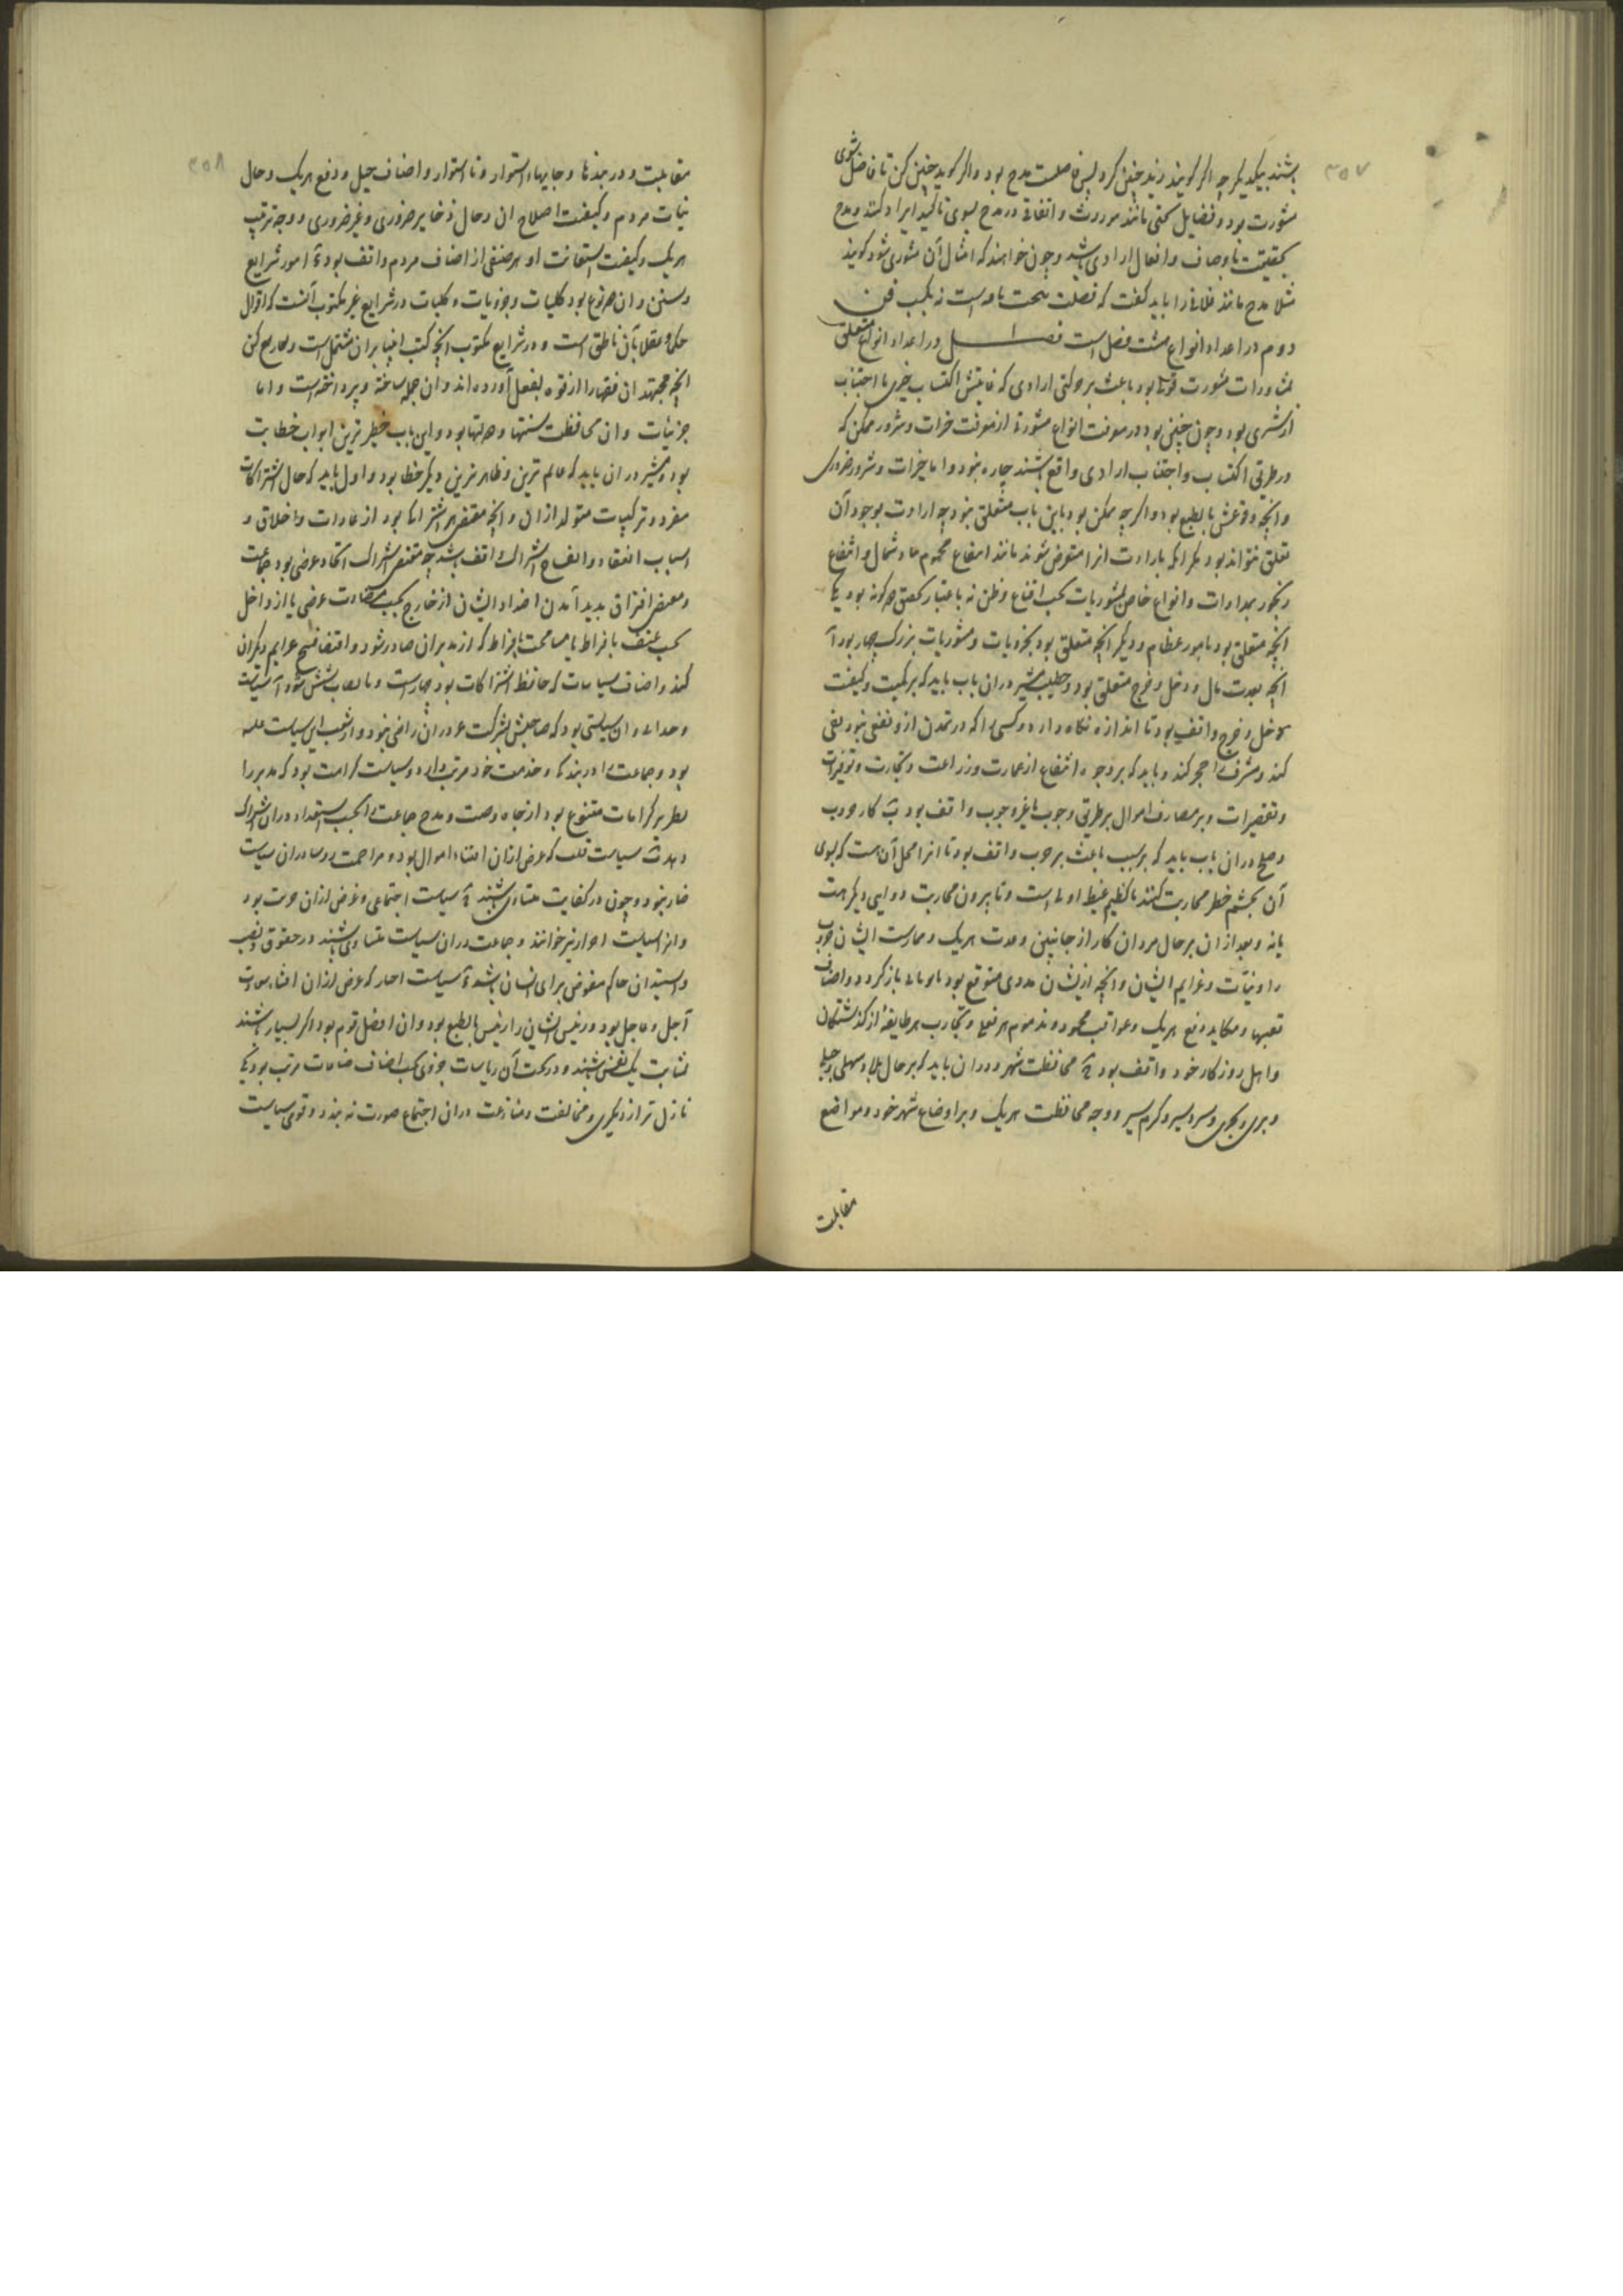 ۳۵۷
باشند بیکدیگر چه اگر گویند زید چنین کرد پس فاضلست مدح بود و اگر گوید چنین کن تا فاضل شوی
مشورت بود و فضایل بختی مانند موروث و اتفاقی در مدح بسوی تاکید ایراد کنند و مدح
بحقیقت باوصاف و افعال ارادی باشد و چون خواهند که امثال آن مشوری شود گویند
مثلا مدح مانند فلانی را باید گفت که فضیلت ببخت یافته است نه بکسب فن
دوم در اعداد انواع هشت فصل است فصل ا در اعداد انواع متعلق
بمشاورات مشورت قولی بود باعث بر حرکتی ارادی که غایتش اکتساب خیری یا اجتناب
از شری بود و چون چنین بود در معرفت انواع مشورة از معرفت خیرات و شرور ممکن که
در طریق اکتساب و اجتناب ارادی واقع باشند چاره نبود و اما خیرات و شرور ضروری
و آنچه وقوعش بالطبع بود و اگر چه ممکن بود باین باب متعلق نبود چه ارادت بوجود آن
متعلق نتواند بود مگر آنکه بارادت آنرا متعرض شوند مانند انتفاع محموم بباد شمال و انتفاع
رنجور بمداوات و انواع خاص مشوریات بحسب اقناع و ظن نه باعتبار تحقیق دو گونه بود یکی
آنچه متعلق بود بامور عظام و دیگر آنچه متعلق بود بجزویات و مشوریات بزرگ چهار بود آ
آنچه بعدت مال و دخل و خرج متعلق بود و خطیب مشیر در آن باب باید که بر کمیت و کیفیت
دخل و خرج واقف بود تا اندازه نگاه دارد و کسی را که در تمدن ازو نفعی نبود نفی
کند و مسرف را حجر کند و باید که بر وجوه انتفاع از عمارت و زراعت و تجارت و توفیرات
و تقصیرات و بر مصارف اموال بر طریق وجوب یا غیر وجوب واقف بود ب کار حرب
و صلح در آن باب باید که بر سبب باعث بر حرب واقف بود تا آنرا محل آن هست که بسوی
آن تجشم خطر محاربت کنند یا کظم غیظ اولی است و تا بیرون محاربت دوایی دیگر هست
یا نه و بعد از آن بر حال مردان کار از جانبین و عدت هر یک و ممارست ایشان حرب
را و نیات و عزایم ایشان و آنچه از ایشان مددی متوقع بود یا وبالی باز گردد و اصناف
تعبیها و مکاید و نفع هر یک و عواقب محمود و مذموم هر فعلی و تجارب هر طایفه از گذشتگان
و اهل روزگار خود واقف بود ج محافظت شهر و در آن باید که بر حال بلاد سهلی و جبلی
و بری و بحری و سردسیر و گرم سیر و وجه محافظت هر یک و بر اوضاع شهر خود و مواضع
مقابلت
۳۵۸
مقابلت و دربندها و جایهاء استوار و نا استوار و اصناف حیل و دفع هر یک و حال
نیات مردم و کیفیت اصلاح آن و حال ذخایر ضروری و غیر ضروری و وجه ترتیب
هر یک و کیفیت استعانت او بهر صنفی از اصناف مردم واقف بود د امور شرایع
و سنن و آن دو نوع بود کلیات و جزویات و کلیات در شرایع غیر مکتوب آنست که اقوال
حکما و عقلا بآن ناطق است و در شرایع مکتوب آنچه کتب انبیا بر آن مشتمل است
آنچه مجتهدان فقها را از قوه بفعل آورده اند و آن جمله ساخته و پرداخته است و اما
جزئیات و آن محافظت سنتها و دولتها بود و این باب خطیر ترین ابواب خطابت
بود و مشیر در آن باید که عالم ترین و ظاهر ترین دیگر خطبا بود و اول باید که حال اشتراکات
مفرد و ترکیبات متولد از آن و آنچه مقتضی هر اشتراکها بود از عادات و اخلاق و
اسباب انعقاد و انفساخ اشتراک واقف باشد چه مقتضی اشتراک اتحاد غرضی بود جماعت
و مقتضی افتراق پدید آمدن اضداد ایشان از خارج بحسب مضادت غرضی یا از داخل
بحسب عنف بافراط یا مسامحت بافراط که از مدبران صادر شود و اقتضا فسخ عزایم دیگران
کند و اصناف سیاسات که حافظ اشتراکات بود چهار است و شش شود آ سیاست
وحدانی و آن سیاستی بود که صاحبش بشرکت غیر در آن راضی نبود و از شعب این سیاست غلبه
بود و جماعت را در بندگی و خدمت خود مرتب دارد و سیاست کرامت بود که مدبر را
نظر بر کرامات متنوع بود از جاه و صیت و مدح جماعت را بحسب استعداد در آن اشتراک
دهد ب سیاست قلت که غرض از آن اقتناء اموال بود و مزاحمت رؤسا در آن سیاست
ضار نبود و چون در کفایت متساوی باشند ج سیاست اجتماعی و غرض از آن حریت بود
و آنرا سیاست احرار نیز خوانند و جماعت در آن سیاست متساوی باشند در حقوق و نصب
و استبدال حاکم مفوض برای ایشان باشد د سیاست اخیار که غرض از آن اقتناء سعادت
آجل و عاجل بود و رئیس ایشان را رئیس بالطبع بود و آن افضل قوم بود و اگر بسیار باشند
بمثابت یک نفس باشند و در تحت آن ریاسات جزوی بحسب اصناف صناعات مرتب بود یکی
نازل تر از دیگری و مخالفت و منازعت در آن اجتماع صورت نه بندد و قوی سیاست